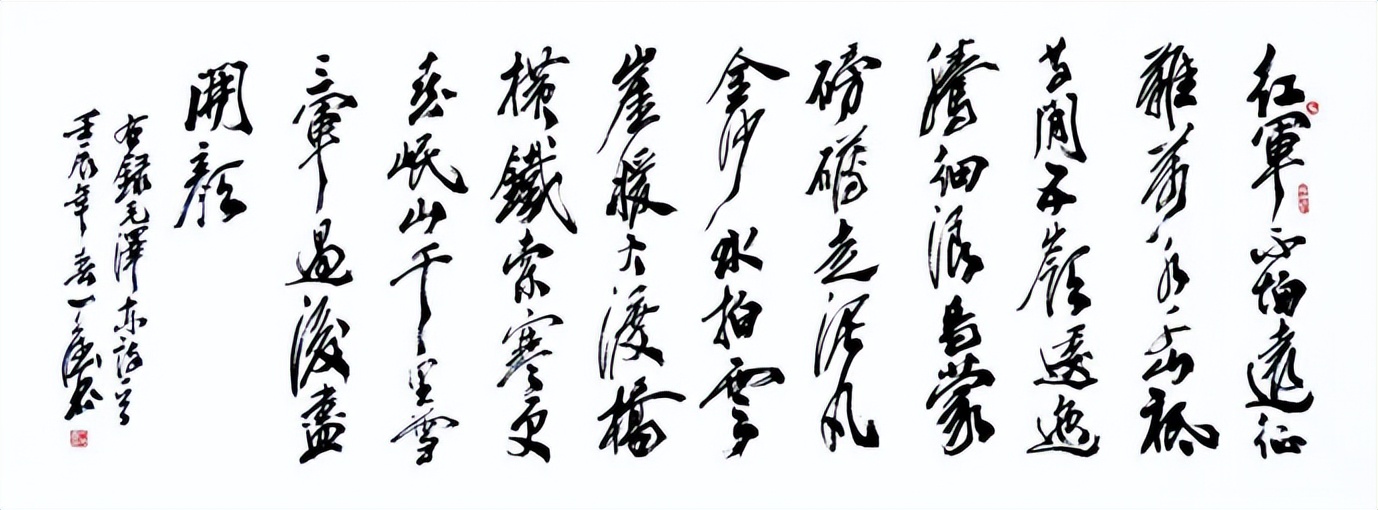 紅軍不怕遠征
難萬水千山祗
等閒五嶺逶迤
騰細浪烏蒙
磅礴走泥丸
金沙水拍雲
崖暖大渡橋
横鐵索寒更
喜岷山千里雪
三軍過後盡
開顏
右録毛澤东詩一首
壬辰年春